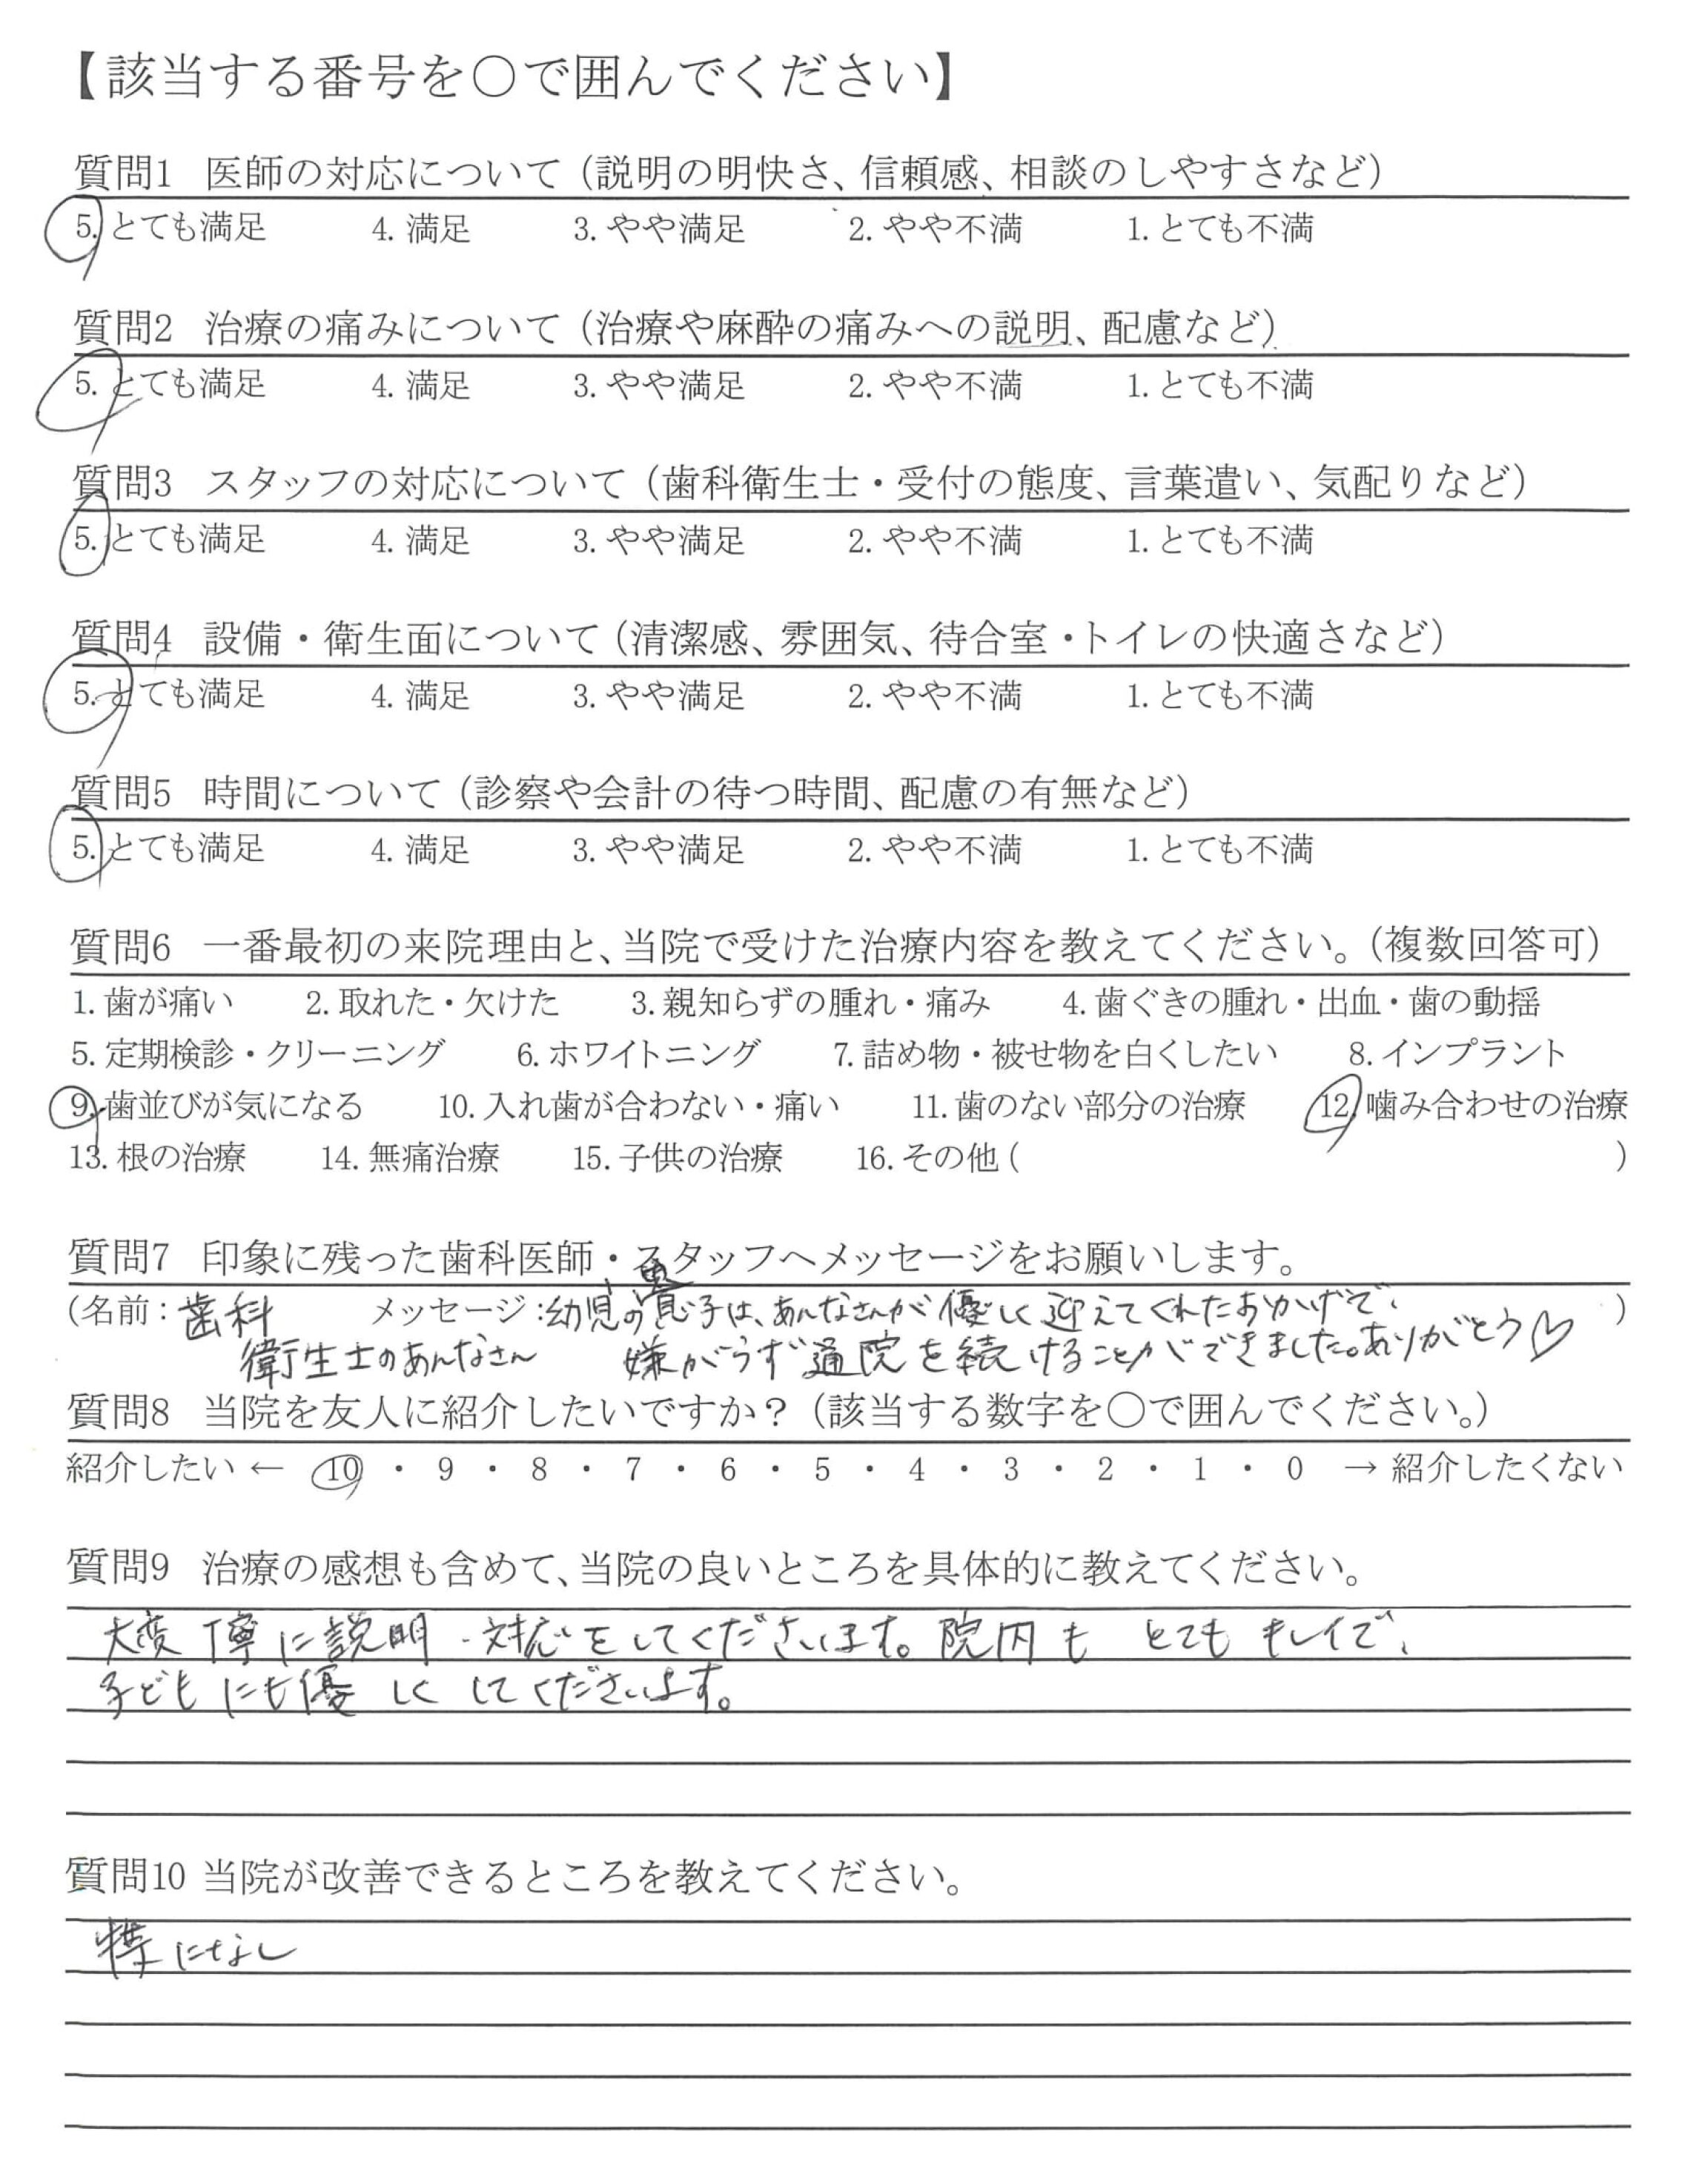 【該当する番号を○で囲んでください】
質問1 医師の対応について（説明の明快さ、信頼感、相談のしやすさなど）
5. とても満足 4. 満足 3. やや満足 2. やや不満 1. とても不満
質問2 治療の痛みについて（治療や麻酔の痛みへの説明、配慮など）
5. とても満足 4. 満足 3. やや満足 2. やや不満 1. とても不満
質問3 スタッフの対応について（歯科衛生士・受付の態度、言葉遣い、気配りなど）
5. とても満足 4. 満足 3. やや満足 2. やや不満 1. とても不満
質問4 設備・衛生面について（清潔感、雰囲気、待合室・トイレの快適さなど）
5. とても満足 4. 満足 3. やや満足 2. やや不満 1. とても不満
質問5 時間について（診察や会計の待つ時間、配慮の有無など）
5. とても満足 4. 満足 3. やや満足 2. やや不満 1. とても不満
質問6 一番最初の来院理由と、当院で受けた治療内容を教えてください。（複数回答可）
1. 歯が痛い 2. 取れた・欠けた 3. 親知らずの腫れ・痛み 4. 歯ぐきの腫れ・出血・歯の動揺
5. 定期検診・クリーニング 6. ホワイトニング 7. 詰め物・被せ物を白くしたい 8. インプラント
9. 歯並びが気になる 10. 入れ歯が合わない・痛い 11. 歯のない部分の治療 12. 噛み合わせの治療
13. 根の治療 14. 無痛治療 15. 子供の治療 16. その他（ ）
質問7 印象に残った歯科医師・スタッフへメッセージをお願いします。
（名前：歯科 メッセージ：幼児の息子は、あんなさんが優しく迎えてくれたおかげで、）
衛生士のあんなさん 嫌がらず通院を続けることができました。ありがとう♡
質問8 当院を友人に紹介したいですか？（該当する数字を○で囲んでください。）
紹介したい ← 10 ・ 9 ・ 8 ・ 7 ・ 6 ・ 5 ・ 4 ・ 3 ・ 2 ・ 1 ・ 0 → 紹介したくない
質問9 治療の感想も含めて、当院の良いところを具体的に教えてください。
大変丁寧に説明・対応をしてくださいます。院内も とても キレイで、
子どもにも優しくしてくださいます。
質問10 当院が改善できるところを教えてください。
特になし